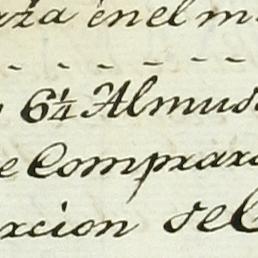 aza en el m
6¼ Almus
e Comprar
rcion se